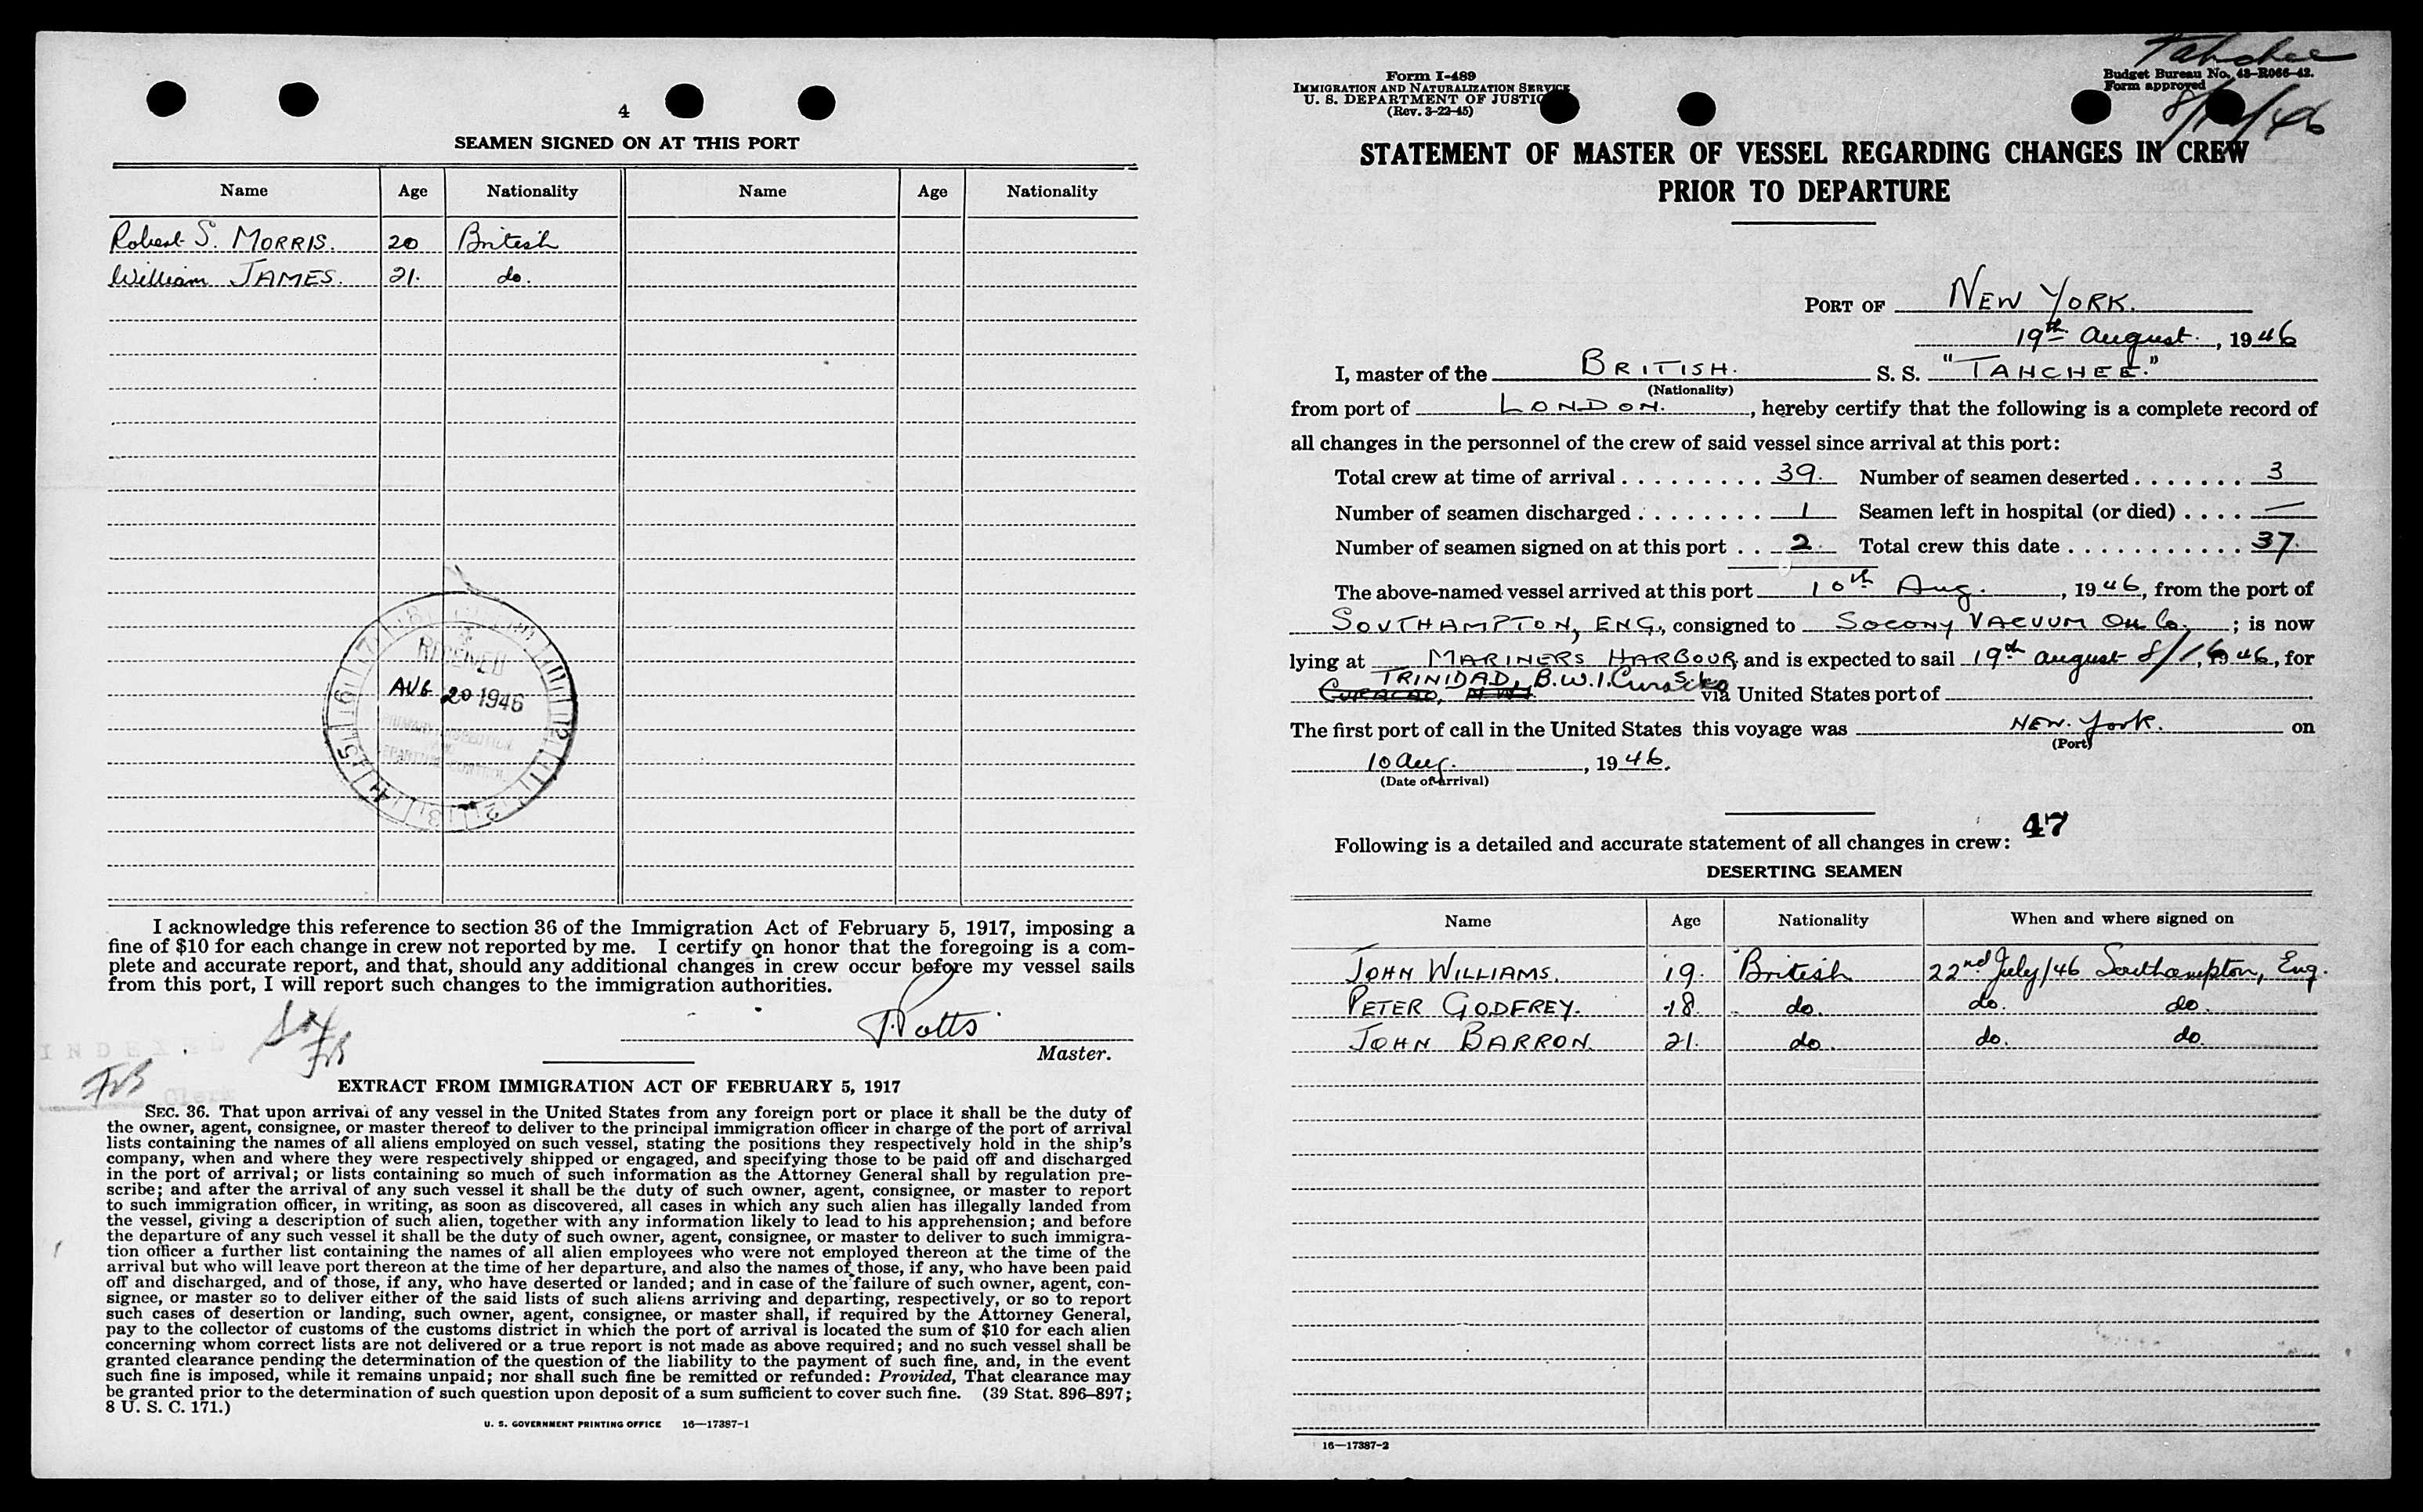 4
SEAMEN SIGNED ON AT THIS PORT
Name Age Nationality Name Age Nationality
Robert S. MORRIS. 20 British
William JAMES. 21. do.
RECEIVED
AUG 20 1946
I acknowledge this reference to section 36 of the Immigration Act of February 5, 1917, imposing a
fine of $10 for each change in crew not reported by me. I certify on honor that the foregoing is a com-
plete and accurate report, and that, should any additional changes in crew occur before my vessel sails
from this port, I will report such changes to the immigration authorities.
Potts
Master.
INDEXED
Clerk
EXTRACT FROM IMMIGRATION ACT OF FEBRUARY 5, 1917
SEC. 36. That upon arrival of any vessel in the United States from any foreign port or place it shall be the duty of
the owner, agent, consignee, or master thereof to deliver to the principal immigration officer in charge of the port of arrival
lists containing the names of all aliens employed on such vessel, stating the positions they respectively hold in the ship's
company, when and where they were respectively shipped or engaged, and specifying those to be paid off and discharged
in the port of arrival; or lists containing so much of such information as the Attorney General shall by regulation pre-
scribe; and after the arrival of any such vessel it shall be the duty of such owner, agent, consignee, or master to report
to such immigration officer, in writing, as soon as discovered, all cases in which any such alien has illegally landed from
the vessel, giving a description of such alien, together with any information likely to lead to his apprehension; and before
the departure of any such vessel it shall be the duty of such owner, agent, consignee, or master to deliver to such immigra-
tion officer a further list containing the names of all alien employees who were not employed thereon at the time of the
arrival but who will leave port thereon at the time of her departure, and also the names of those, if any, who have been paid
off and discharged, and of those, if any, who have deserted or landed; and in case of the failure of such owner, agent, con-
signee, or master so to deliver either of the said lists of such aliens arriving and departing, respectively, or so to report
such cases of desertion or landing, such owner, agent, consignee, or master shall, if required by the Attorney General,
pay to the collector of customs of the customs district in which the port of arrival is located the sum of $10 for each alien
concerning whom correct lists are not delivered or a true report is not made as above required; and no such vessel shall be
granted clearance pending the determination of the question of the liability to the payment of such fine, and, in the event
such fine is imposed, while it remains unpaid; nor shall such fine be remitted or refunded: Provided, That clearance may
be granted prior to the determination of such question upon deposit of a sum sufficient to cover such fine. (39 Stat. 896–897;
8 U. S. C. 171.)
U. S. GOVERNMENT PRINTING OFFICE 16—17387-1
Tahchee
Form I-489
IMMIGRATION AND NATURALIZATION SERVICE
U. S. DEPARTMENT OF JUSTICE
(Rev. 3-22-45)
Budget Bureau No. 43-R066-42.
Form approved
STATEMENT OF MASTER OF VESSEL REGARDING CHANGES IN CREW
PRIOR TO DEPARTURE
PORT OF NEW YORK.
19th August., 1946
I, master of the BRITISH. S. S. "TAHCHEE."
(Nationality)
from port of LONDON., hereby certify that the following is a complete record of
all changes in the personnel of the crew of said vessel since arrival at this port:
Total crew at time of arrival . . . . . . . . . 39. Number of seamen deserted . . . . . . . 3
Number of seamen discharged . . . . . . . . 1 Seamen left in hospital (or died) . . . . —
Number of seamen signed on at this port . . 2. Total crew this date . . . . . . . . . . . 37.
The above-named vessel arrived at this port 10th Aug., 1946, from the port of
SOUTHAMPTON, ENG., consigned to SOCONY VACUUM Oil Co.; is now
lying at MARINERS HARBOUR, and is expected to sail 19th August, 1946, for
TRINIDAD, B.W.I.
CURACAO, N.W.I. via United States port of
The first port of call in the United States this voyage was NEW. York. on
(Port)
10 Aug., 1946.
(Date of arrival)
Following is a detailed and accurate statement of all changes in crew: 47
DESERTING SEAMEN
Name Age Nationality When and where signed on
JOHN WILLIAMS. 19. British 22nd July/46 Southampton, Eng.
PETER GODFREY. 18. do. do. do.
JOHN BARRON. 21. do. do. do.
16—17387-2